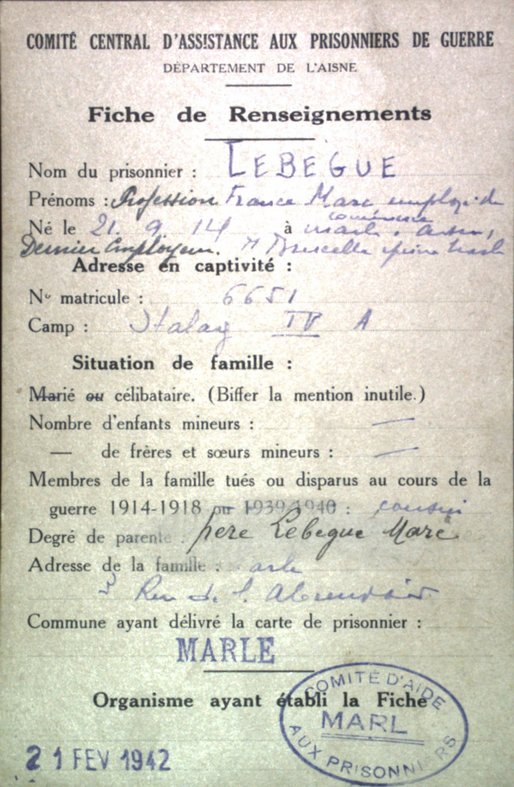 COMITÉ CENTRAL D'ASSISTANCE AUX PRISONNIERS DE GUERRE
DÉPARTEMENT DE L'AISNE
Fiche de Renseignements
Nom du prisonnier : LEBEGUE
Prénoms : Profession France Marc employé de
commerce
Né le 21. 9. 14 à Marle, Aisne,
Dernier Employeur.
Adresse en captivité :
No matricule : 6651
Camp : Stalag IV A
Situation de famille :
Marié ou célibataire. (Biffer la mention inutile.)
Nombre d'enfants mineurs : —
— de frères et sœurs mineurs : —
Membres de la famille tués ou disparus au cours de la
guerre 1914-1918 ou 1939-1940 : cousin
Degré de parenté : père Lebegue Marc
Adresse de la famille :
3 Rue
Commune ayant délivré la carte de prisonnier :
MARLE
Organisme ayant établi la Fiche
COMITE D'AIDE
MARL
AUX PRISONNIERS
21 FEV 1942